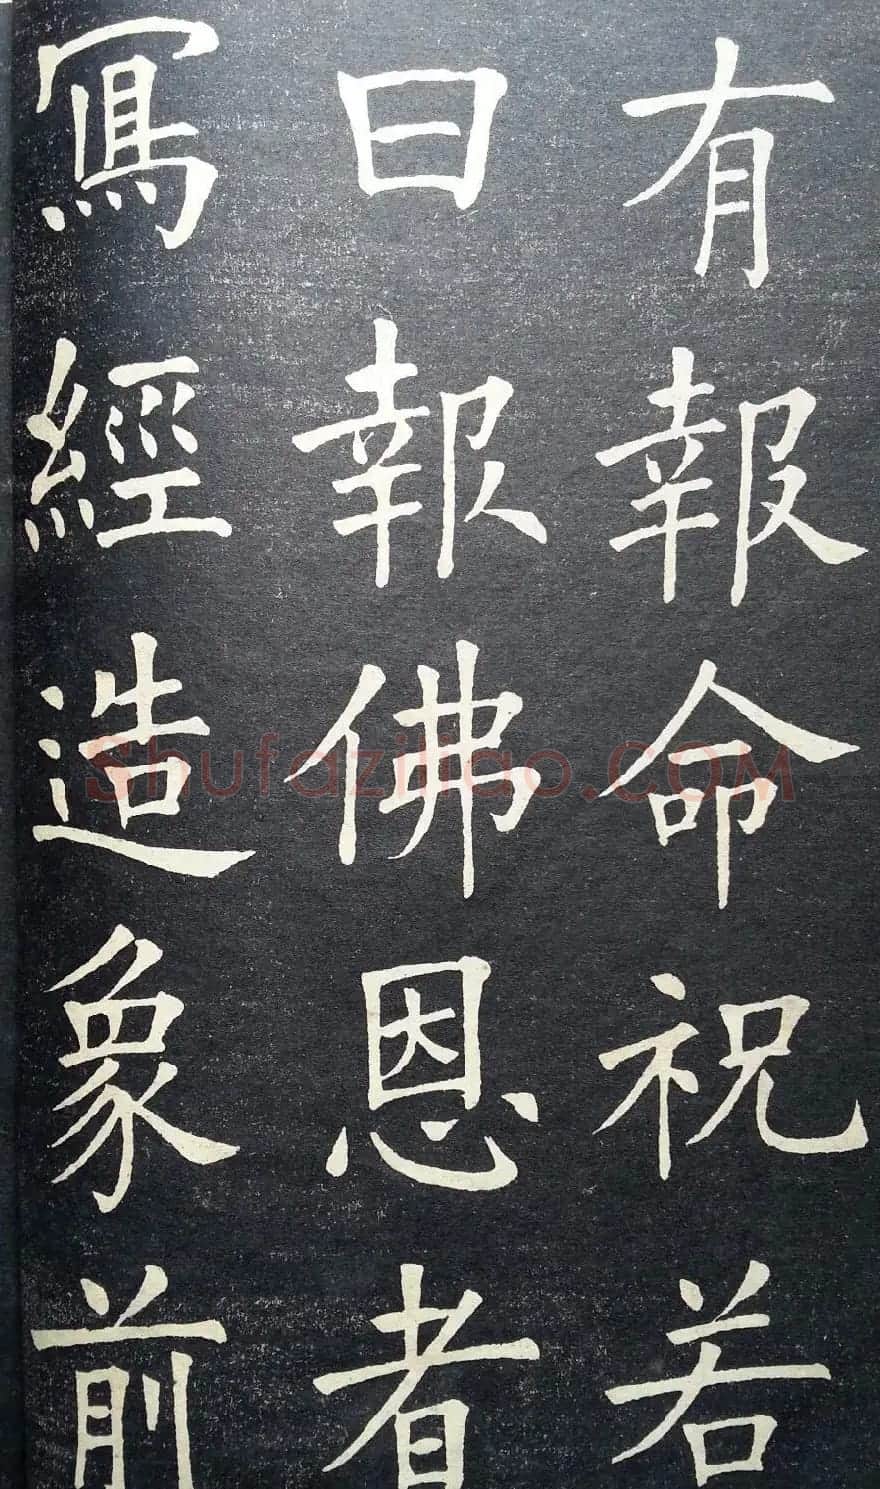 有報命祝若
曰報佛恩者
寫經造象前
Shufaziliao.COM